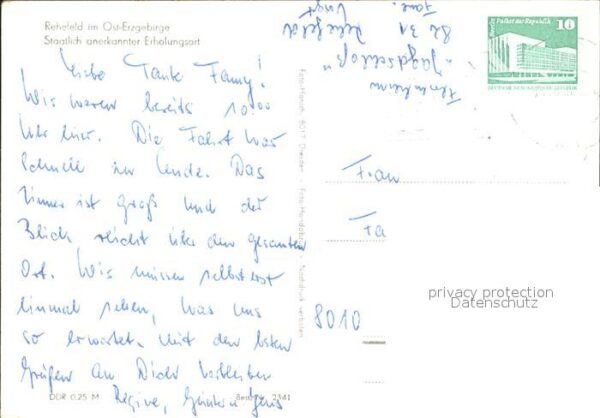 Rehefeld im Ost-Erzgebirge
Staatlich anerkannter Erholungsort
Liebe Tante Fanny!
Wir waren bereits 10.00
Uhr hier. Die Fahrt war
schnell zu Ende. Das
Zimmer ist groß und der
Blick reicht über den gesamten
Ort. Wir müssen selbst erst
einmal sehen, was uns
so erwartet. Mit den besten
Grüßen an Dich verbleiben
Regine, Günter u. Jens
DDR 0,25 M
Best.-Nr. 2341
Rehefeld
"Jagdschloß"
Palast der Republik
10
DEUTSCHE DEMOKRATISCHE REPUBLIK
Frau
Fa
8010
privacy protection
Datenschutz